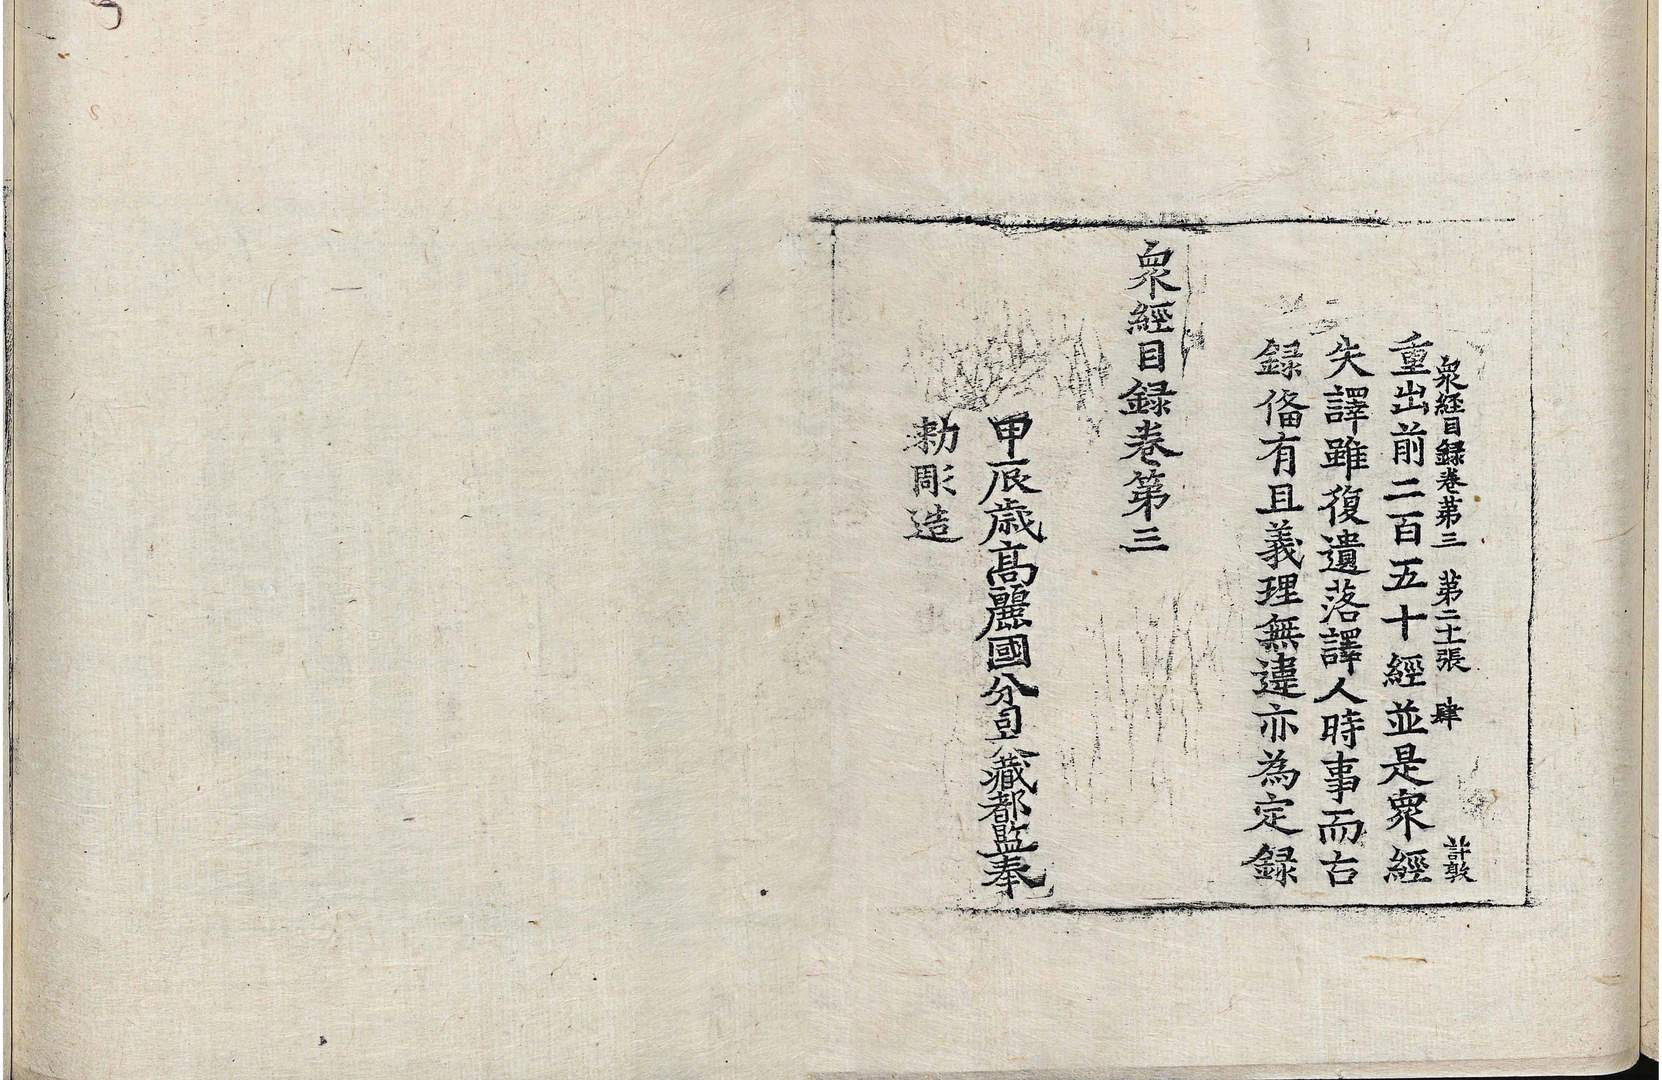 衆経目録巻第三 第二十張 肆 許敦
重出前二百五十經並是衆經
失譯雖復遺落譯人時事而古
録俻有且義理無違亦為定録
衆經目録巻第三
甲辰歳高麗國分司大藏都監奉
勑彫造